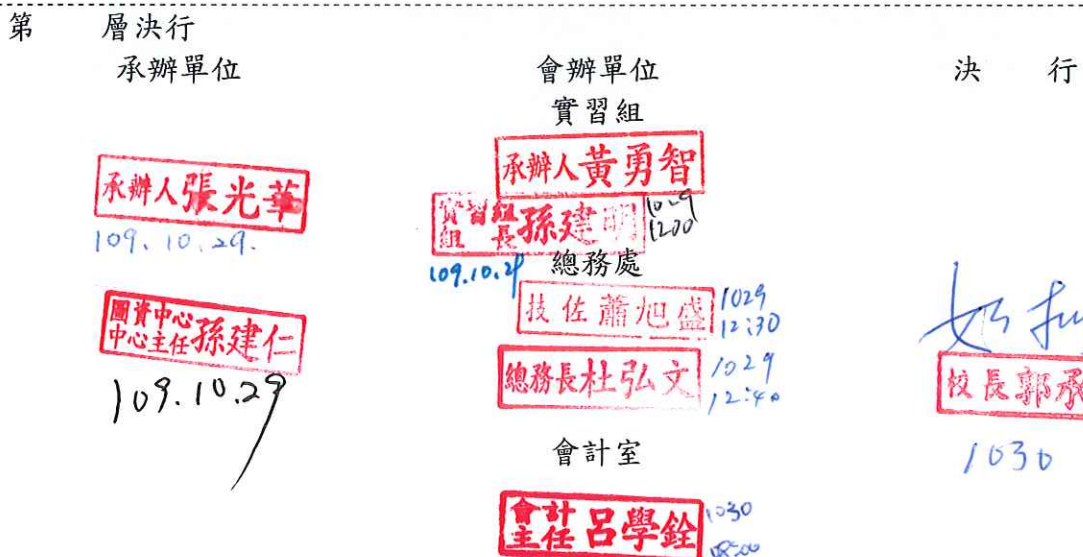 第　　層決行
承辦單位
會辦單位
決　　行
實習組
承辦人張光華
109.10.29.
圖資中心
中心主任孫建仁
109.10.29
承辦人黃勇智
實習組
組長孫建明
1029
1200
109.10.29
總務處
技佐蕭旭盛
1029
12:30
總務長杜弘文
1029
12:40
會計室
會計
主任呂學銓
1030
0800
如
校長郭承
1030